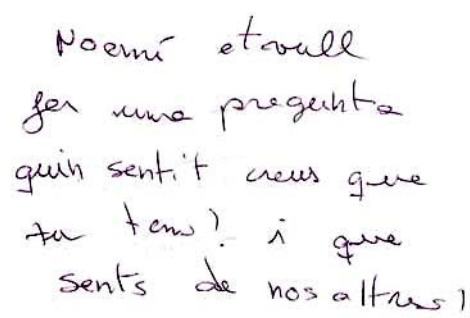 Noemí etvull
fer una pregunta
quin sentit creus que
tu tens? i que
sents de nosaltres?